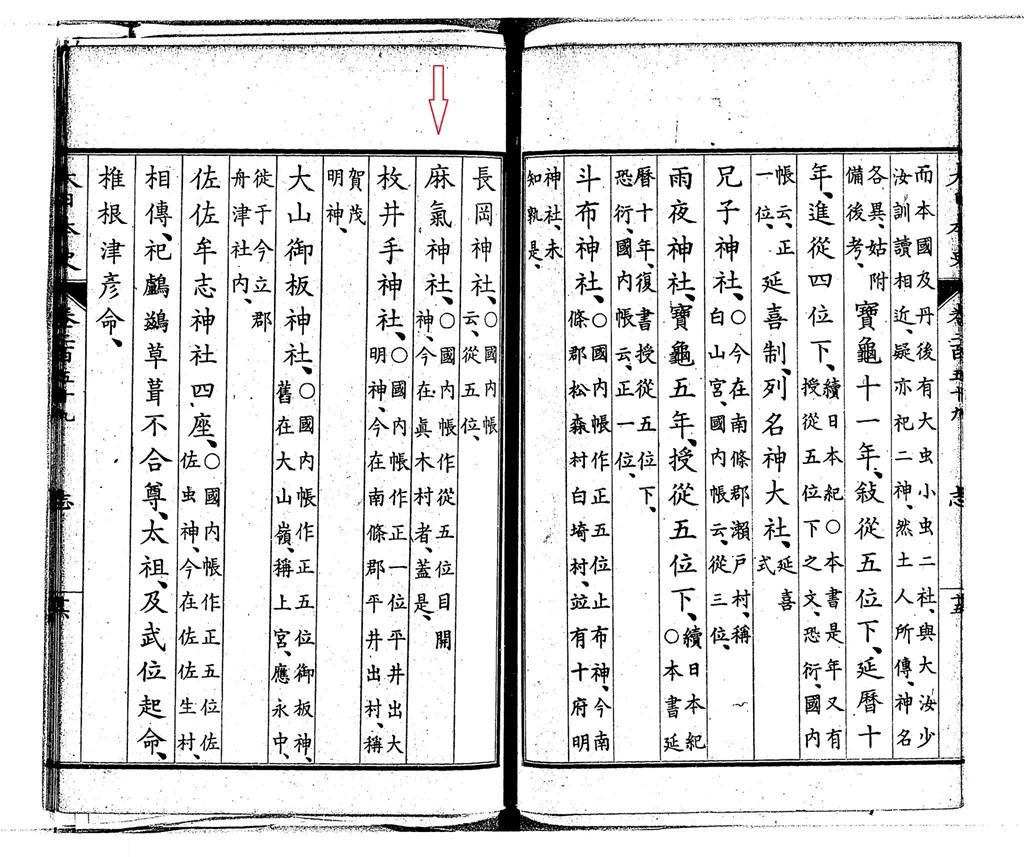 而本國及丹後有大虫小虫二社、與大汝少
汝訓讀相近、疑亦祀二神、然土人所傳、神名
各異、姑附
備後考、
寶龜十一年、敍從五位下、延曆十
年、進從四位下、
續日本紀○本書是年又有
授從五位下之文、恐衍、國內
帳云、正
一位、
延喜制、列名神大社、
延喜
式
兄子神社、
○今在南條郡瀨戶村、稱
白山宮、國內帳云、從三位、
雨夜神社、寶龜五年、授從五位下、
續日本紀
○本書延
曆十年、復書授從五位下、
恐衍、國內帳云、正一位、
斗布神社、
○國內帳作正五位止布神、今南
條郡松森村白埼村、竝有十府明
神社、未
知孰是、
大日本史
卷二百五十九
志
十五
長岡神社、
○國內帳
云、從五位、
麻氣神社、
○國內帳作從五位目開
神、今在眞木村者、蓋是、
枚井手神社、
○國內帳作正一位平井出大
明神、今在南條郡平井出村、稱
賀茂
明神、
大山御板神社、
○國內帳作正五位御板神、
舊在大山嶺、稱上宮、應永中、
徙于今立郡
舟津社內、
佐佐牟志神社四座、
○國內帳作正五位佐
佐虫神、今在佐佐生村、
相傳、祀鸕鷀草葺不合尊、太祖、及武位起命、
椎根津彥命、
大日本史
卷二百五十九
志
十六